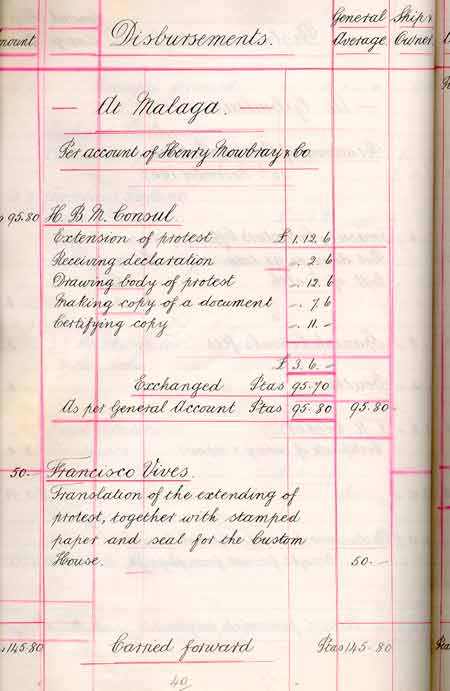 General Average. Ship & Owner
mount Disbursements.
— At Malaga.
Per account of Henry Mowbray & Co
95.80 H. B. M. Consul.
Extension of protest £ 1. 12. 6
Receiving declaration -. 2. 6
Drawing body of protest -. 12. 6
Making copy of a document -. 7. 6
Certifying copy -. 11. -
£ 3. 6. -
Exchanged Ptas 95.70
As per General Account Ptas 95.80 95.80
50.- Francisco Vives.
Translation of the extending of
protest, together with stamped
paper and seal for the Custom
House. 50. -
145.80 Carried forward Ptas 145.80
40